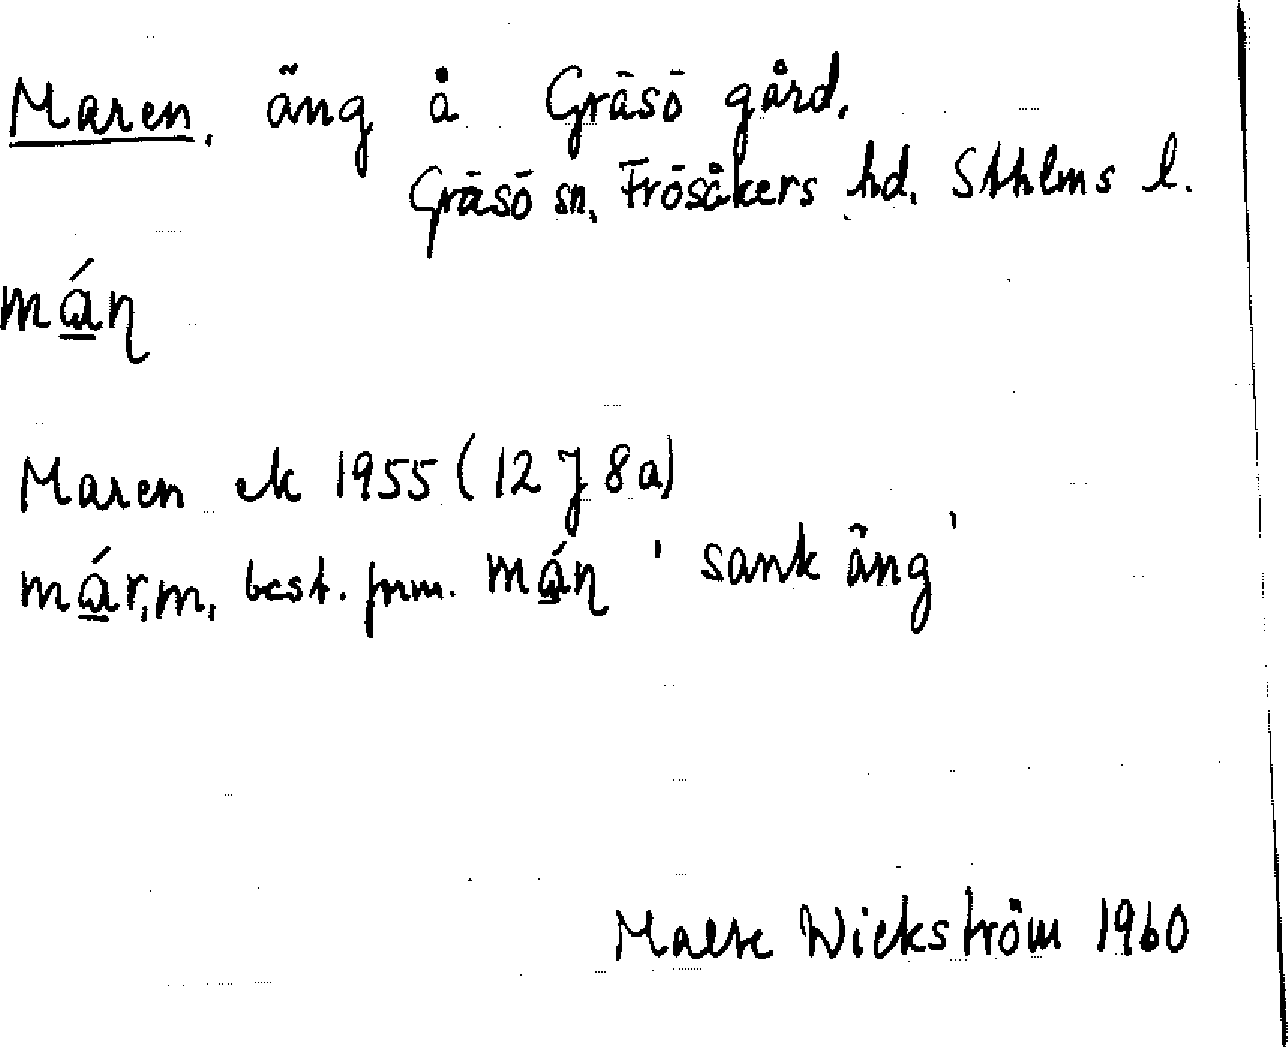 Maren, äng å Gräsö gård,
Gräsö sn, Frösåkers hd, Sthlms l.
mɑ́ɳ
Maren ek 1955 (12 J 8a)
mɑ́r, m, best. form. mɑ́ɳ 'sank äng'
Malte Wickström 1960